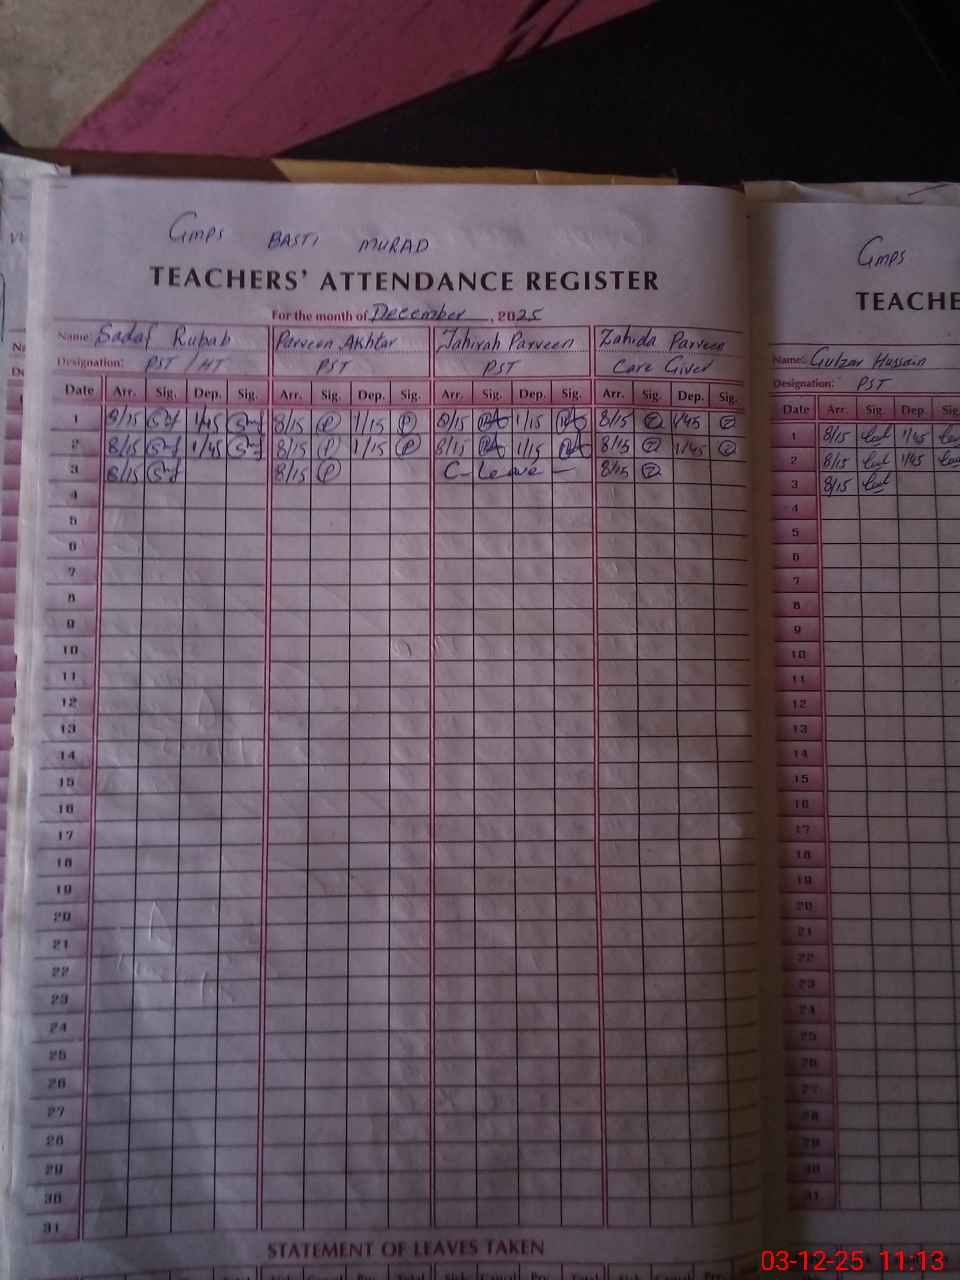 Gmps BASTI MURAD
TEACHERS' ATTENDANCE REGISTER
For the month of December, 2025
Name: Sadaf Rubab Parveen Akhtar Tahirah Parveen Zahida Parveen
Designation: PST / HT PST PST Care Giver
Date Arr. Sig. Dep. Sig. Arr. Sig. Dep. Sig. Arr. Sig. Dep. Sig. Arr. Sig. Dep. Sig.
1 8/15 1/45 8/15 P 1/15 P 8/15 1/15 8/15 Z 1/45 Z
2 8/15 1/45 8/15 P 1/15 P 8/15 1/15 8/15 Z 1/45 Z
3 8/15 8/15 P C-Leave — 8/15 Z
4
5
6
7
8
9
10
11
12
13
14
15
16
17
18
19
20
21
22
23
24
25
26
27
28
29
30
31
STATEMENT OF LEAVES TAKEN
Gmps
TEACHE
Name: Gulzar Hussain
Designation: PST
Date Arr. Sig. Dep. Sig
1 8/15 1/45
2 8/15 1/45
3 8/15
4
5
6
7
8
9
10
11
12
13
14
15
16
17
18
19
20
21
22
23
24
25
26
27
28
29
30
31
03-12-25 11:13